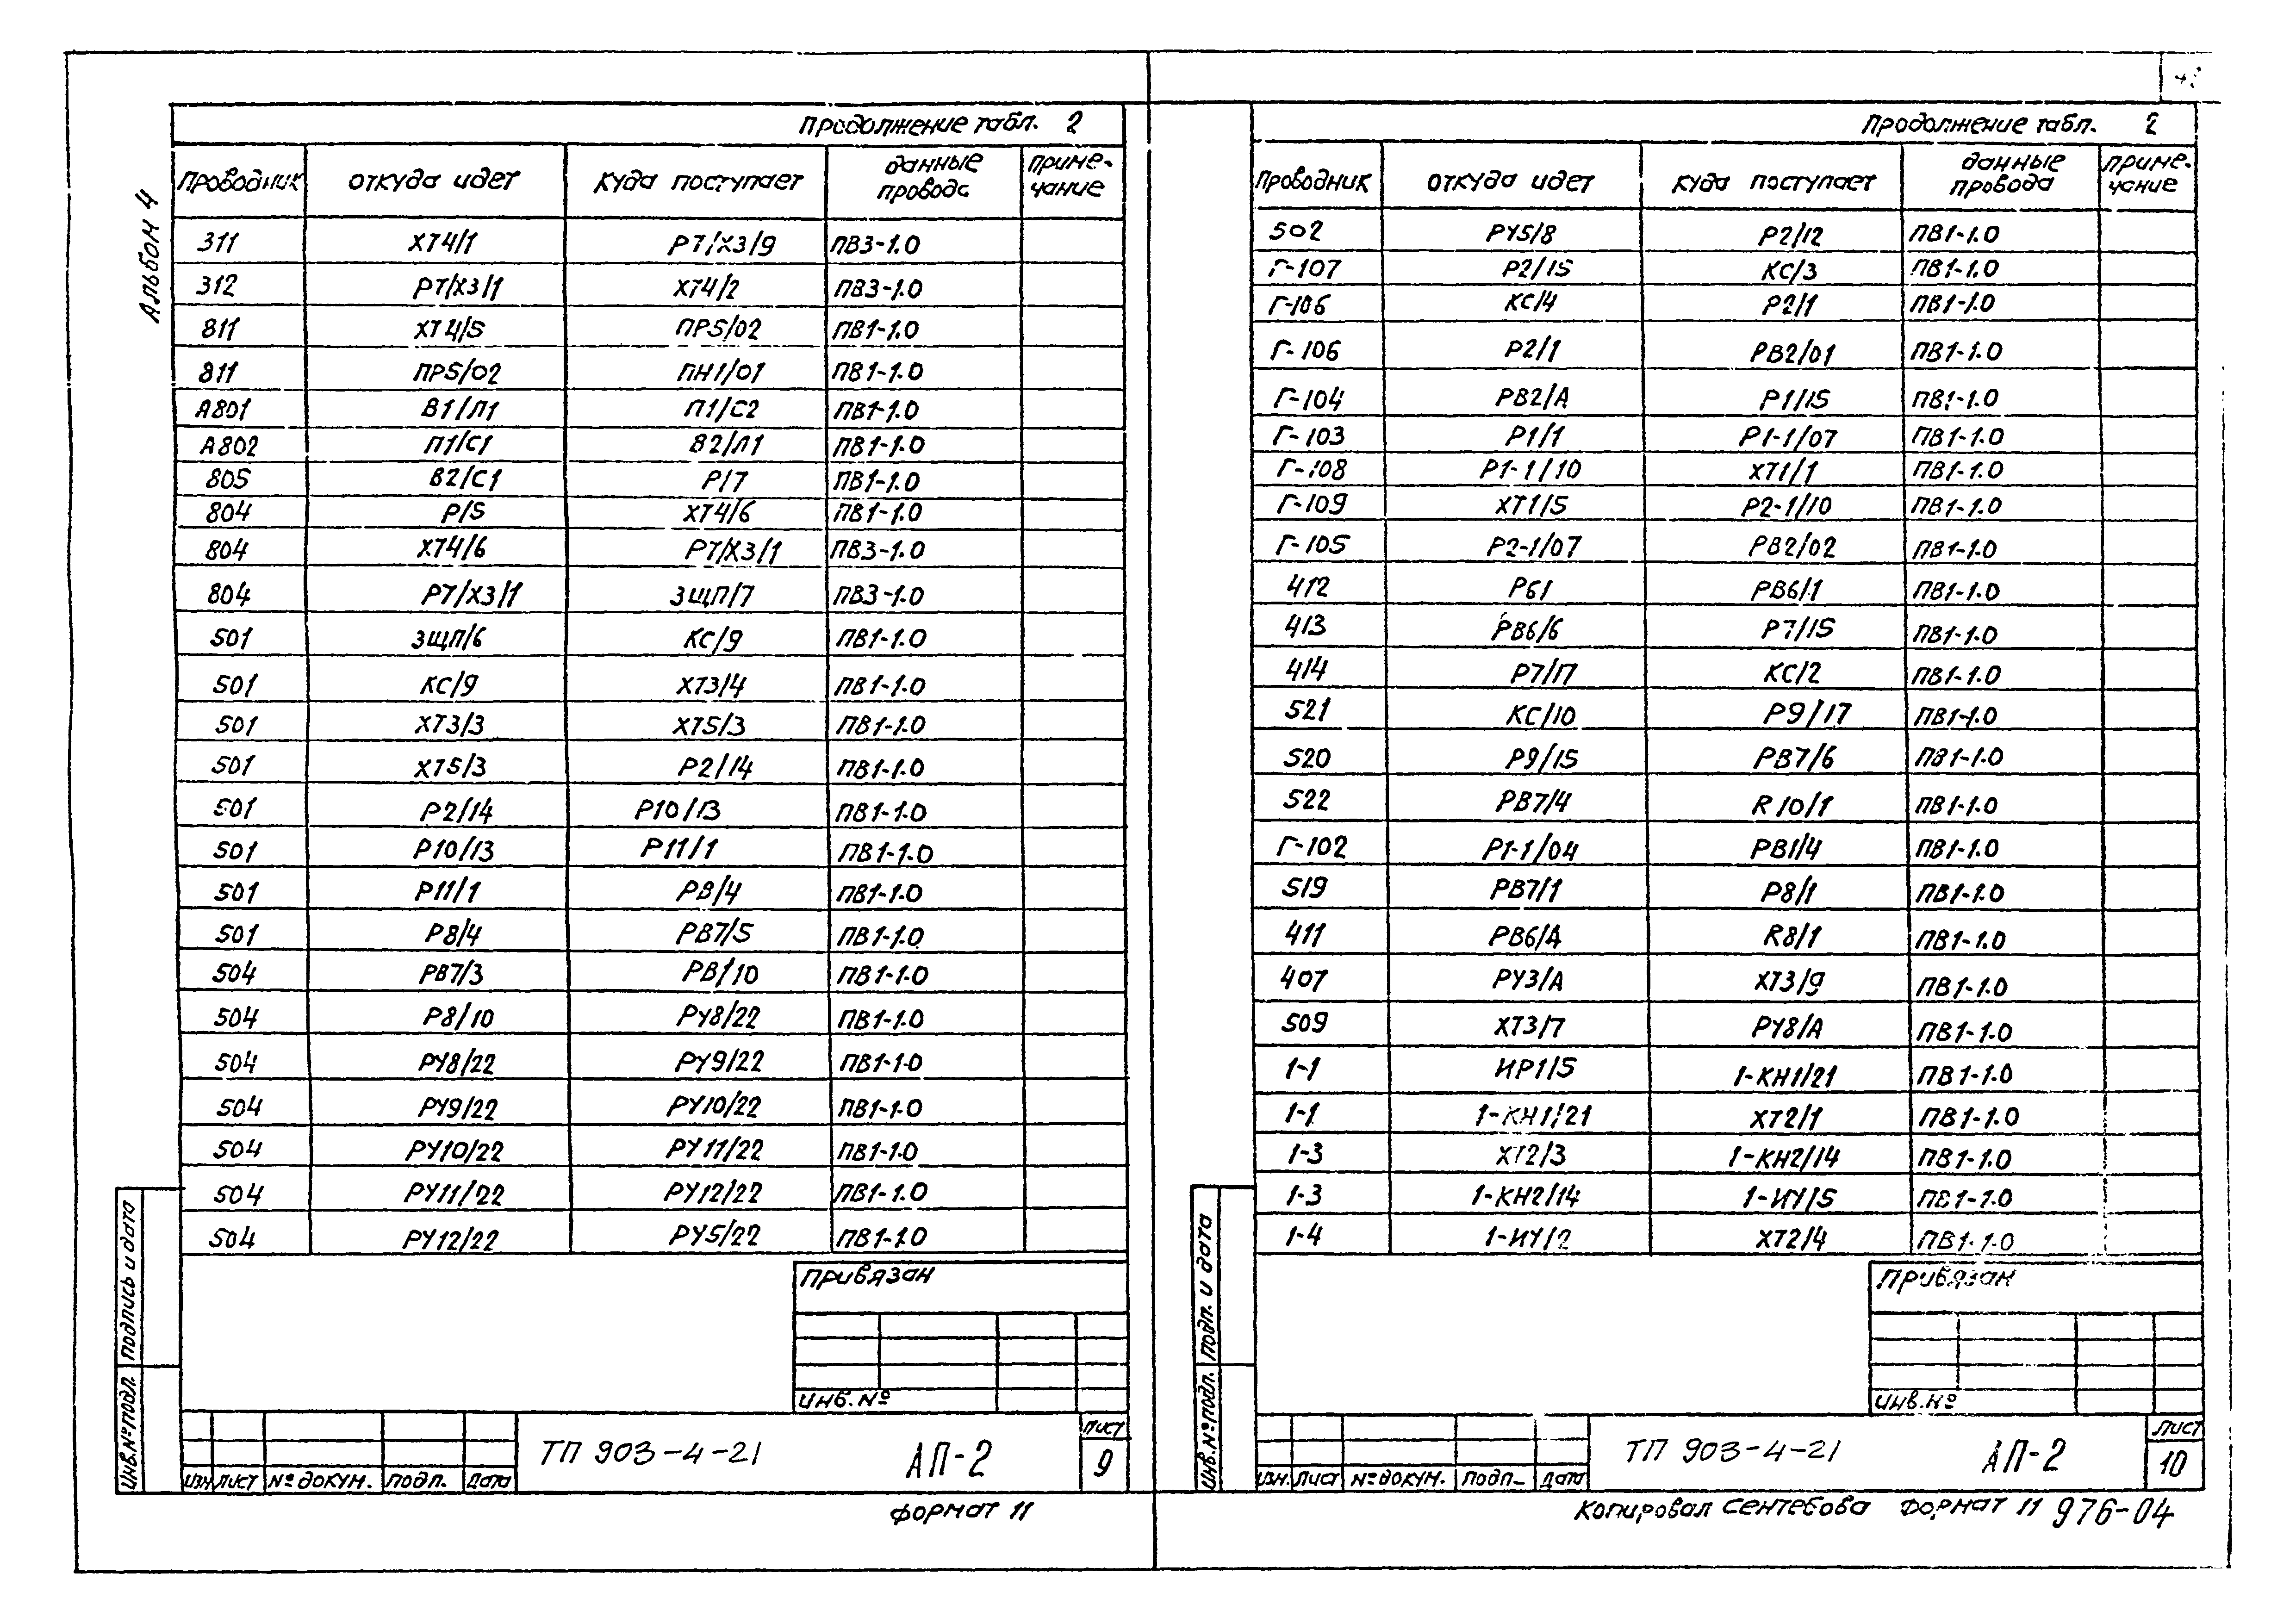 Альбом 4
Продолжение табл. 2
Проводник откуда идет куда поступает данные провода Приме-чание
311 ХТ4/1 Р7/Х3/9 ПВ3-1.0
312 Р7/Х3/1 ХТ4/2 ПВ3-1.0
811 ХТ4/5 ПР5/02 ПВ1-1.0
811 ПР5/02 ПН1/01 ПВ1-1.0
А801 В1/Л1 П1/С2 ПВ1-1.0
А802 П1/С1 В2/Л1 ПВ1-1.0
805 В2/С1 Р/7 ПВ1-1.0
804 Р/5 ХТ4/6 ПВ1-1.0
804 ХТ4/6 Р7/Х3/1 ПВ3-1.0
804 Р7/Х3/1 ЗЩП/7 ПВ3-1.0
501 ЗЩП/6 КС/9 ПВ1-1.0
501 КС/9 ХТ3/4 ПВ1-1.0
501 ХТ3/3 ХТ5/3 ПВ1-1.0
501 ХТ5/3 Р2/14 ПВ1-1.0
501 Р2/14 Р10/13 ПВ1-1.0
501 Р10/13 Р11/1 ПВ1-1.0
501 Р11/1 Р8/4 ПВ1-1.0
501 Р8/4 РВ7/5 ПВ1-1.0
504 РВ7/3 Р8/10 ПВ1-1.0
504 Р8/10 РУ8/22 ПВ1-1.0
504 РУ8/22 РУ9/22 ПВ1-1.0
504 РУ9/22 РУ10/22 ПВ1-1.0
504 РУ10/22 РУ11/22 ПВ1-1.0
504 РУ11/22 РУ12/22 ПВ1-1.0
504 РУ12/22 РУ5/22 ПВ1-1.0
Привязан
Инв.№
Изм Лист № докум. Подп. Дата
ТП 903-4-21 АП-2
Лист
9
Инв.№ подл. Подпись и дата
Формат 11
Продолжение табл. 2
Проводник откуда идет куда поступает данные провода Приме-чание
502 РУ5/8 Р2/12 ПВ1-1.0
Г-107 Р2/15 КС/3 ПВ1-1.0
Г-106 КС/4 Р2/1 ПВ1-1.0
Г-106 Р2/1 РВ2/01 ПВ1-1.0
Г-104 РВ2/А Р1/15 ПВ1-1.0
Г-103 Р1/1 Р1-1/07 ПВ1-1.0
Г-108 Р1-1/10 ХТ1/1 ПВ1-1.0
Г-109 ХТ1/5 Р2-1/10 ПВ1-1.0
Г-105 Р2-1/07 РВ2/02 ПВ1-1.0
412 Р6/ РВ6/1 ПВ1-1.0
413 РВ6/6 Р7/15 ПВ1-1.0
414 Р7/17 КС/2 ПВ1-1.0
521 КС/10 Р9/17 ПВ1-1.0
520 Р9/15 РВ7/6 ПВ1-1.0
522 РВ7/4 R10/1 ПВ1-1.0
Г-102 Р1-1/04 РВ1/4 ПВ1-1.0
519 РВ7/1 Р8/1 ПВ1-1.0
411 РВ6/А R8/1 ПВ1-1.0
407 РУ3/А ХТ3/9 ПВ1-1.0
509 ХТ3/7 РУ8/А ПВ1-1.0
1-1 ИР1/5 1-КН1/21 ПВ1-1.0
1-1 1-КН1/21 ХТ2/1 ПВ1-1.0
1-3 ХТ2/3 1-КН2/14 ПВ1-1.0
1-3 1-КН2/14 1-ИУ/5 ПВ1-1.0
1-4 1-ИУ/2 ХТ2/4 ПВ1-1.0
Привязан
Инв.№
Изм. Лист № докум. Подп- Дата
ТП 903-4-21 АП-2
Лист
10
Инв.№ подл. Подп. и дата
Копировал Сентебова Формат 11 976-04